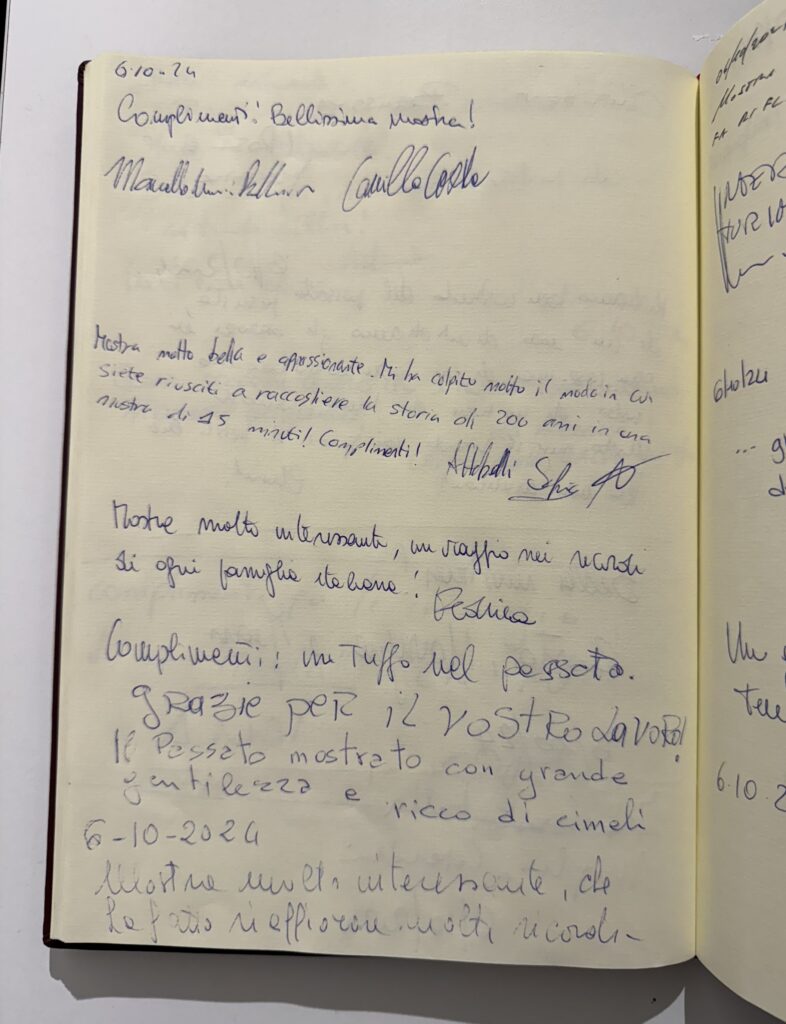 6-10-24
Complimenti! Bellissima mostra!
Camilla Costa
Mostra molto bella e appassionante. Mi ha colpito molto il modo in cui
siete riusciti a raccogliere la storia di 200 anni in una
mostra di 45 minuti! Complimenti!
Mostra molto interessante, un viaggio nei ricordi
di ogni famiglia italiana!
Complimenti! un Tuffo nel passato.
grazie per il vostro lavoro!
Il Passato mostrato con grande
gentilezza e ricco di cimeli
6-10-2024
Mostra molto interessante, che
ha fatto riaffiorare molti ricordi-
Mostra
6/10/24
... g
d
Un
6.10.2